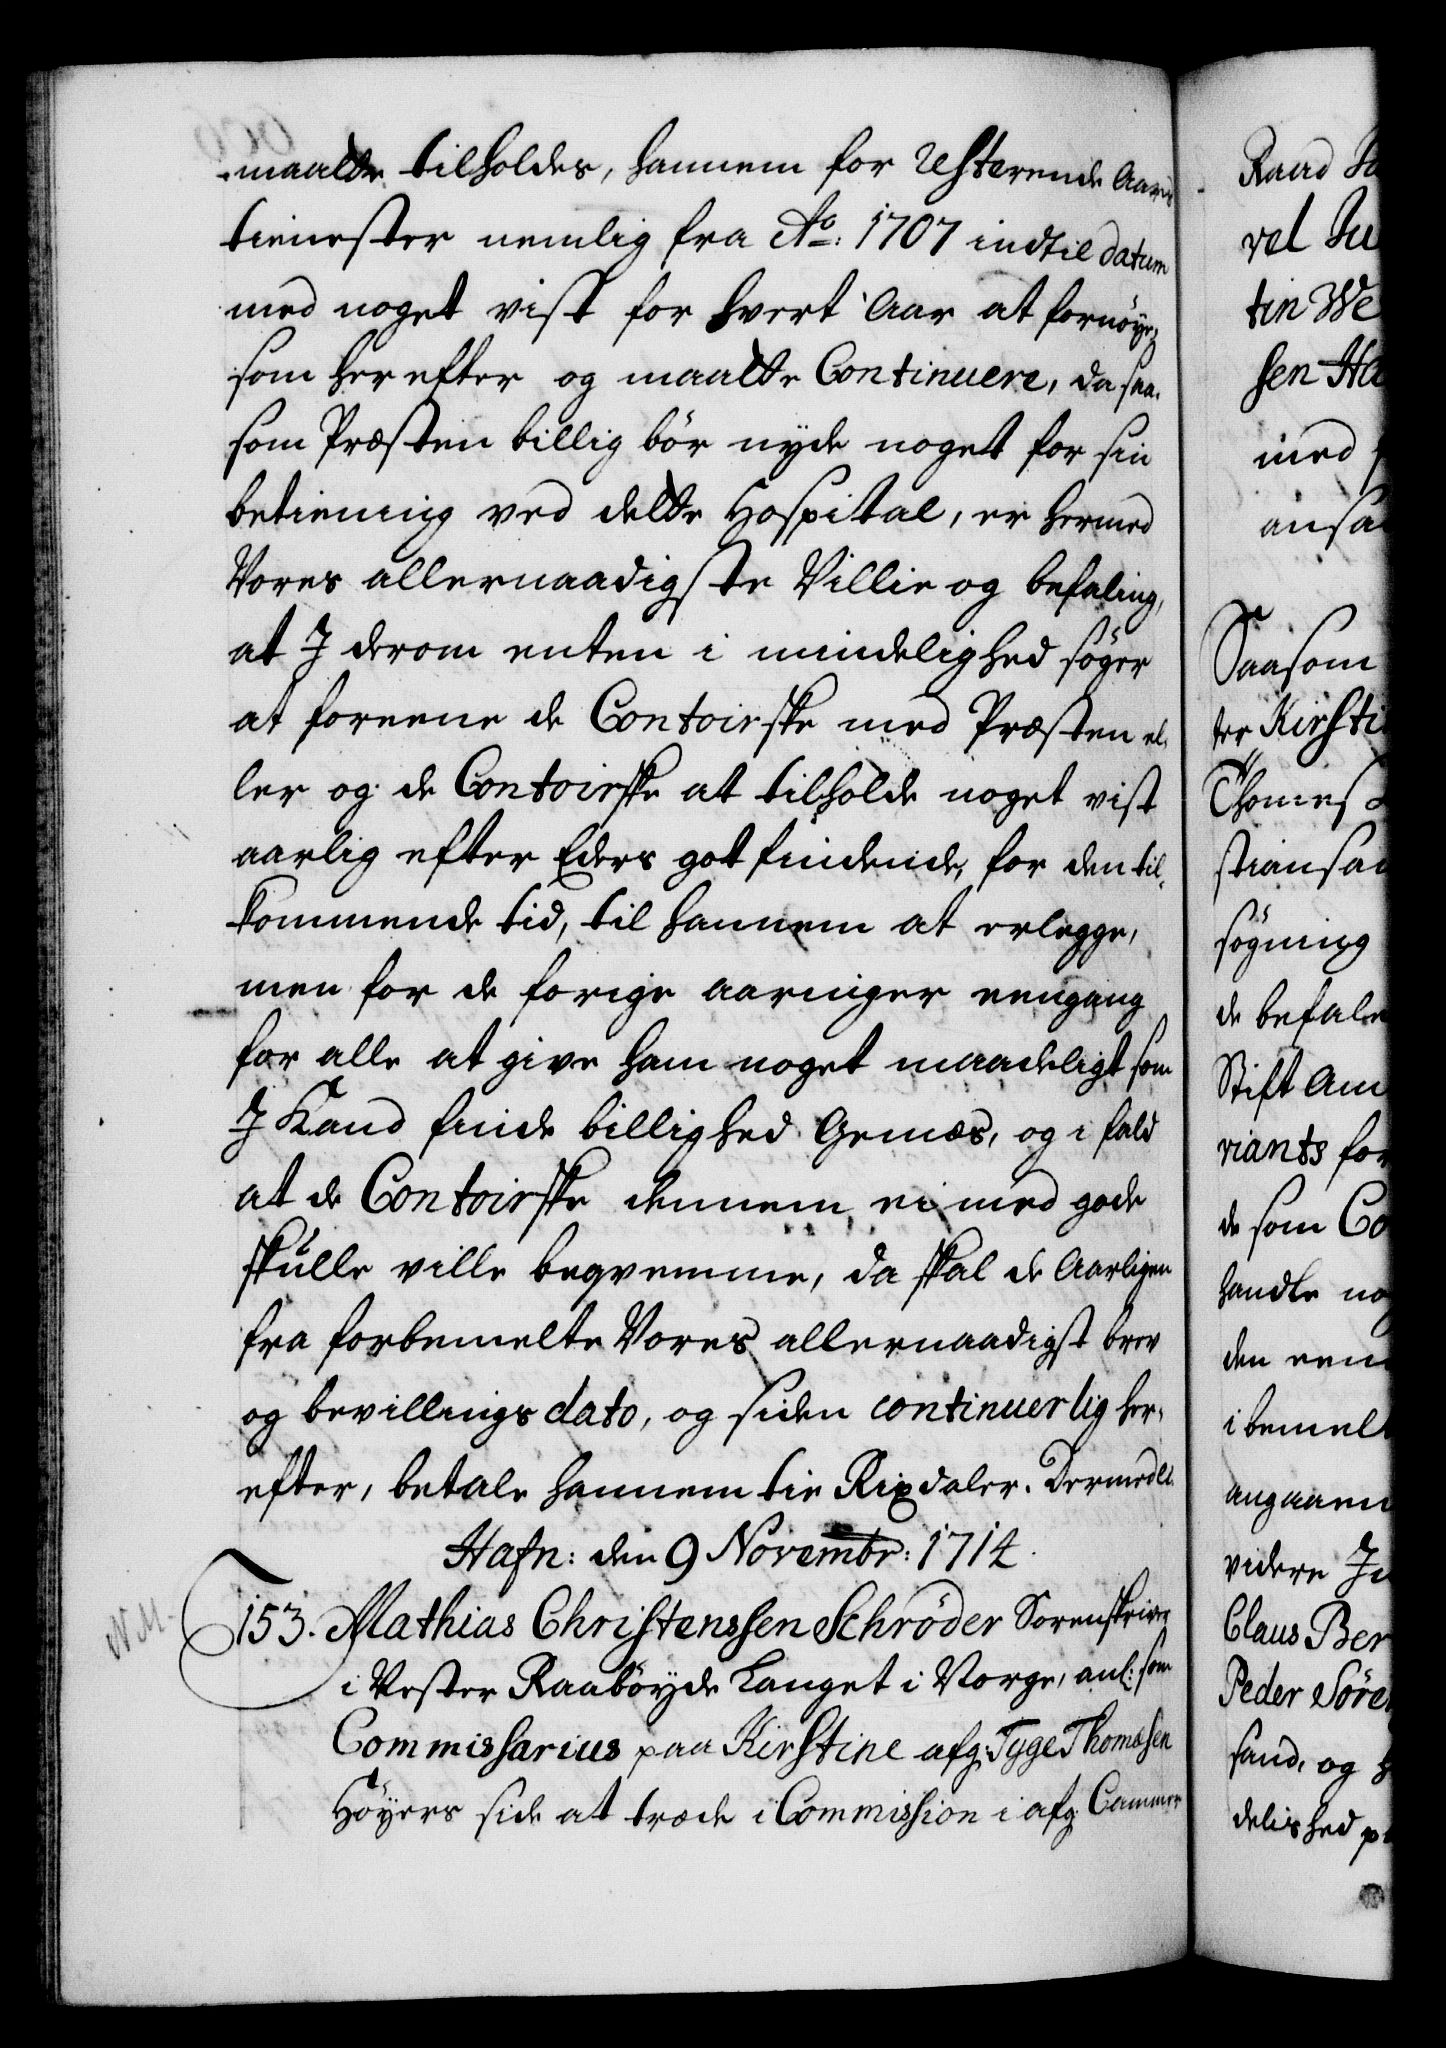 maatte tilholdes, hannem for resterende Aars
tienester nemlig fra Ao: 1707 indtil datum
med noget vist for hvert Aar at fornöye,
som her efter og maatte Continuere, da saa-
som Præsten billig bör nyde noget for sin
betiening ved dette Hospital, er hermed
Vores allernaadigste Villie og befaling,
at J derom enten i mindelighed söger
at foreene de Contoirske med Præsten el-
ler og de Contoirske at tilholde noget vist
aarlig efter Eders got findende, for den til-
kommende tid, til hannem at erlegge,
men for de forige aaringer eengang
for alle at give ham noget maadeligt som
J Kand finde billighed Gemæs, og i fald
at de Contoirske dennem ei med gode
skulle ville beqvemme, da skal de Aarligen
fra forbemelte Vores allernaadigst brev
og bevillings dato, og siden continuerlig her-
efter, betale hannem tie Rixdaler. Dermed etc.
Hafn: den 9 Novembr: 1714.
153. Mathias Christenssen Schrøder Sorenskriver
i Vester Raaböyde Lauget i Norge, anl: som
Commissarius paa Kirstine afg: Tyge Thomæsen
Höyers side at træde i Commission i afg: Cammer
N.M.
Raad
vel
tin We
sen
med
ansa
Saasom
ter Kirsti
Thomes
stiansa
søgning
de befale
Stift Am
riants for
de som Co
handle no
den een
i bemel
angaaen
videre
Claus Ber
Peder Søre
sand, og
delighed